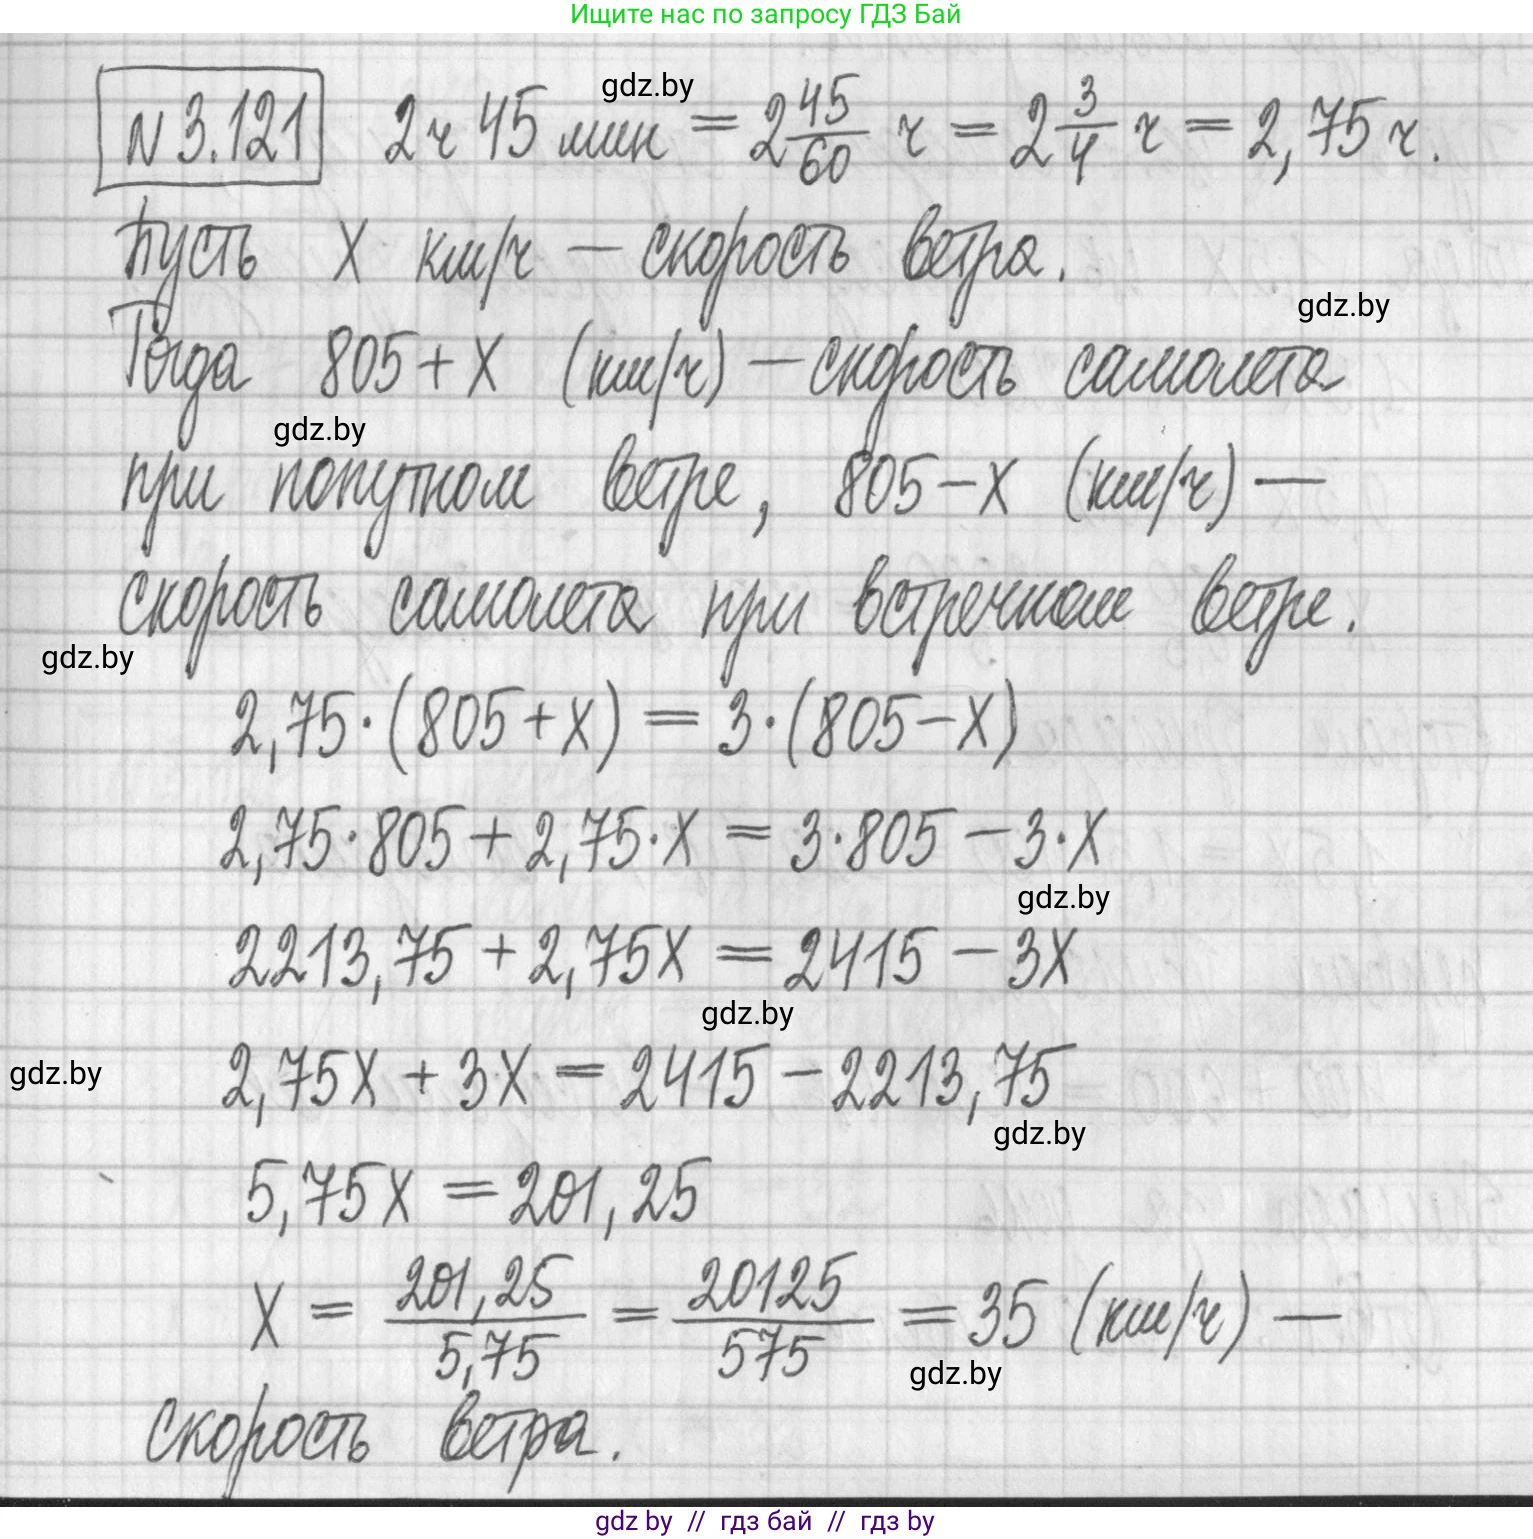 Ищите нас по запросу ГДЗ Бай
gdz.by
N 3.121 2ч 45 мин = 2 45/60 ч = 2 3/4 ч = 2,75 ч.
Пусть x км/ч — скорость ветра.
gdz.by
Тогда 805 + x (км/ч) — скорость самолета
gdz.by
при попутном ветре, 805 - x (км/ч) —
скорость самолета при встречном ветре.
gdz.by
2,75 · (805 + x) = 3 · (805 - x)
2,75 · 805 + 2,75 · x = 3 · 805 - 3 · x
gdz.by
2213,75 + 2,75x = 2415 - 3x
gdz.by
2,75x + 3x = 2415 - 2213,75
gdz.by
gdz.by
5,75x = 201,25
x = 201,25/5,75 = 20125/575 = 35 (км/ч) —
gdz.by
скорость ветра.
gdz by // гдз бай // гдз by